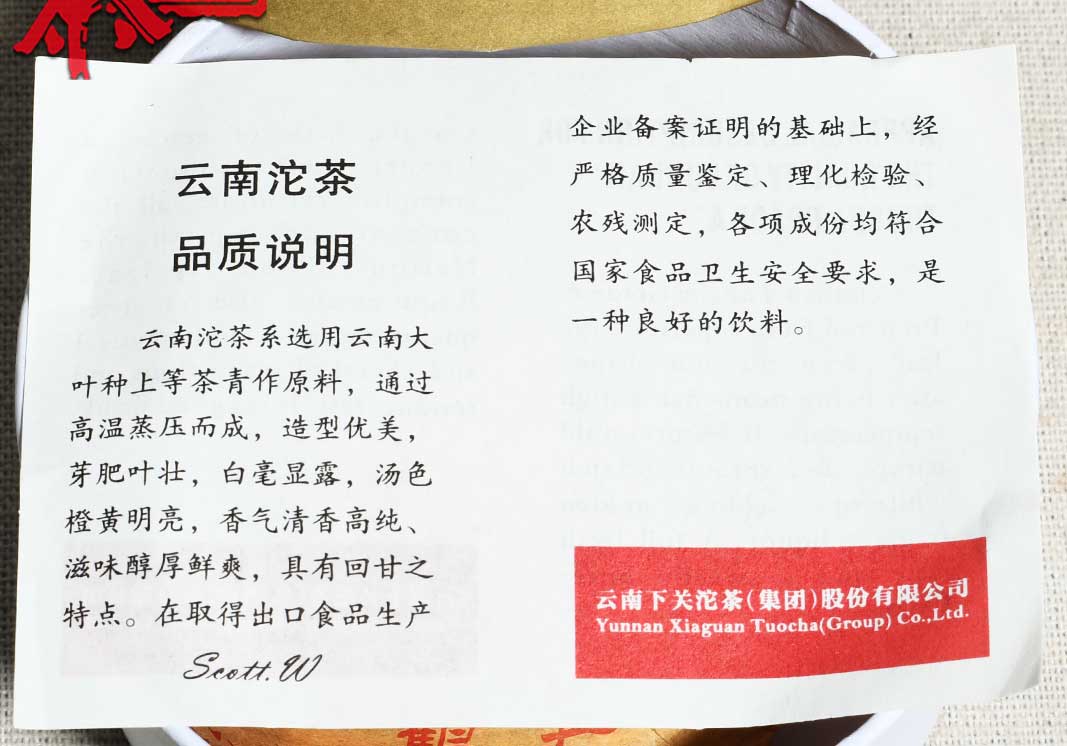 云南沱茶
品质说明
云南沱茶系选用云南大
叶种上等茶青作原料，通过
高温蒸压而成，造型优美，
芽肥叶壮，白毫显露，汤色
橙黄明亮，香气清香高纯、
滋味醇厚鲜爽，具有回甘之
特点。在取得出口食品生产
Scott.W
企业备案证明的基础上，经
严格质量鉴定、理化检验、
农残测定，各项成份均符合
国家食品卫生安全要求，是
一种良好的饮料。
云南下关沱茶(集团)股份有限公司
Yunnan Xiaguan Tuocha(Group) Co.,Ltd.